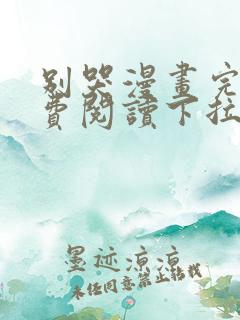 别哭漫畫完
费閱讀下拉
墨迹凉凉
未经同意禁止转载